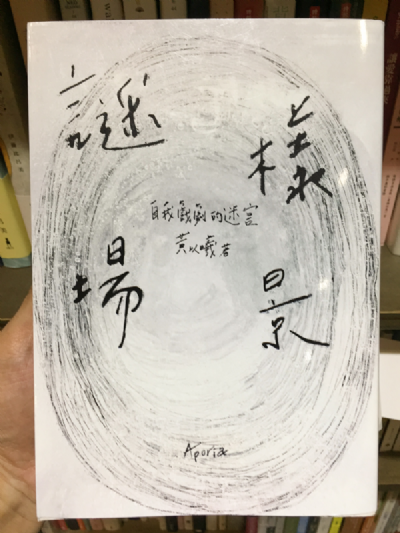 謎樣
場景
自我戲劇的迷宮
黃以曦 著
Aporia